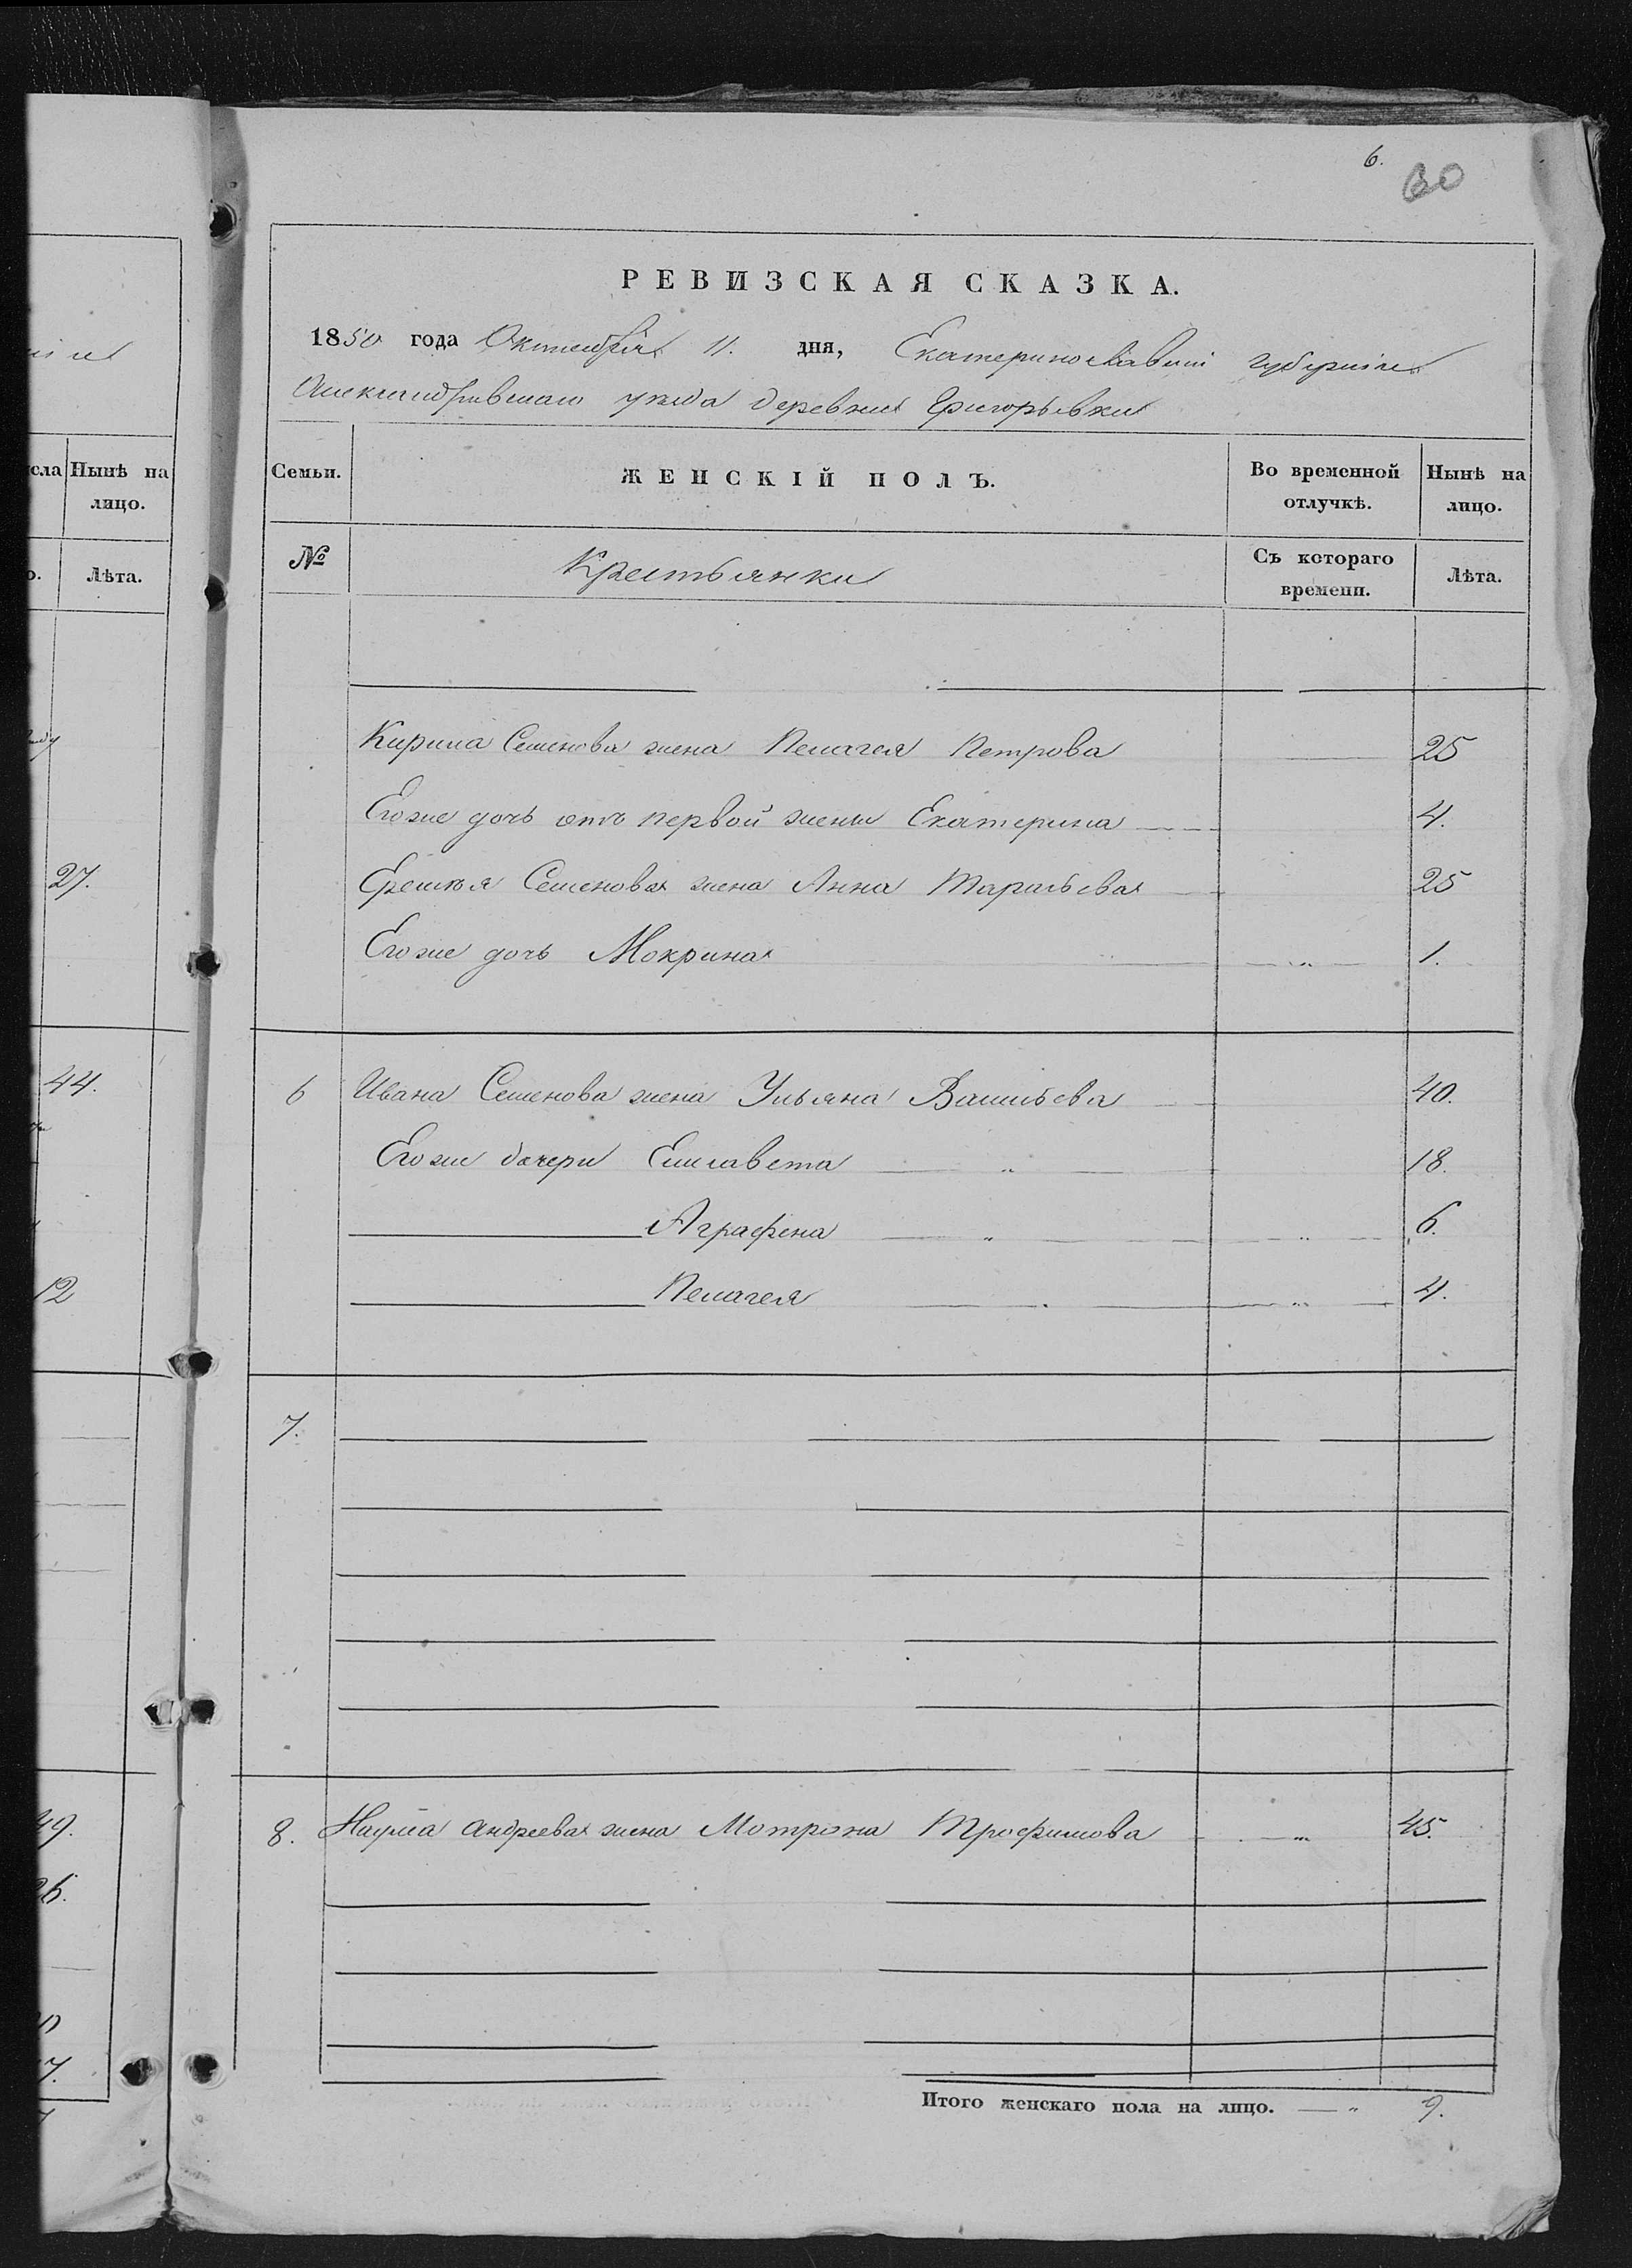 6.
30
РЕВИЗСКАЯ СКАЗКА.
1850 года Октября 11. дня, Екатеринославской губернии
Александровскаго уезда деревни Григорьевки
Семьи.
ЖЕНСКІЙ ПОЛЪ.
Во временной отлучкѣ.
Нынѣ на лицо.
№
Крестьянки
Съ котораго времени.
Лѣта.
Кирила Семенова жена Пелагея Петрова 25
Егоже дочь отъ первой жены Екатерина 4.
Еремѣя Семенова жена Анна Тарасьева 25
Егоже дочь Мокрина 1.
6 Ивана Семенова жена Ульяна Васильева 40.
Егоже дочери Елисавета 18.
Аграфена 6.
Пелагея 4.
7.
8. Наума Андреева жена Мотрона Трофимова 45.
Итого женскаго пола на лицо. 9.
сла
Нынѣ на лицо.
Лѣта.
27.
44.
12